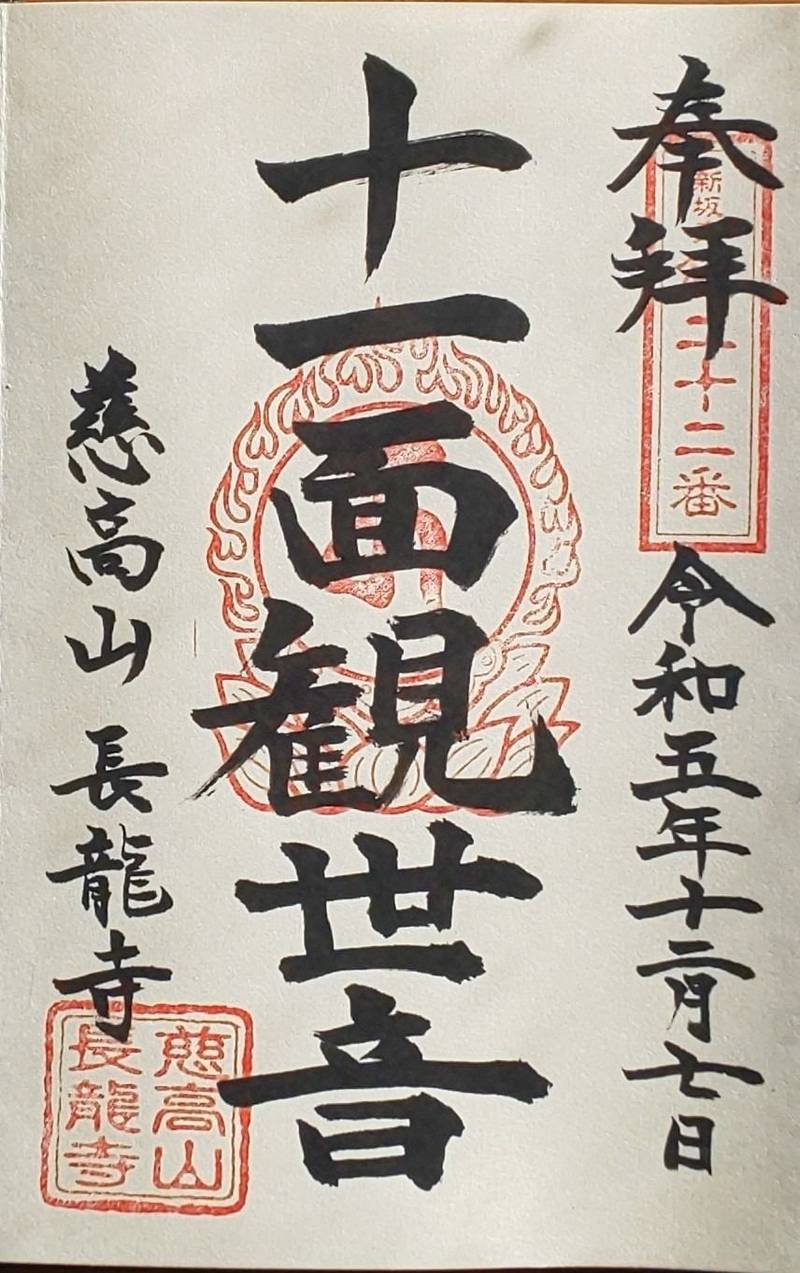 奉拝
新坂
二十二番
令和五年十二月七日
十一面観世音
慈高山 長龍寺
慈高山
長龍寺